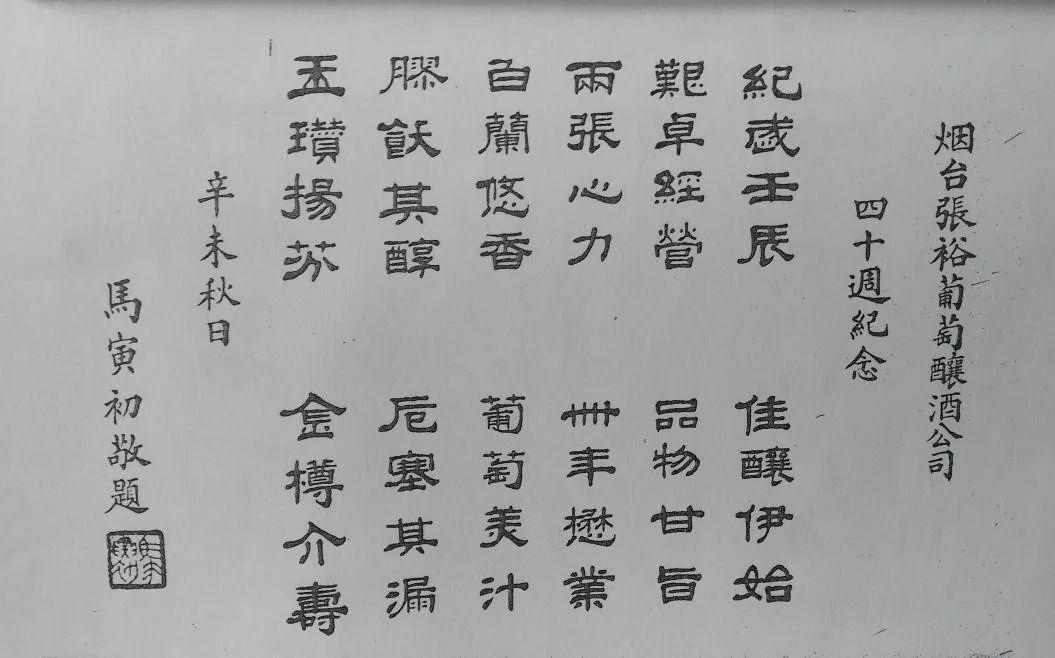 烟台張裕葡萄釀酒公司
四十週紀念
紀歲壬辰 佳釀伊始
艱卓經營 品物甘旨
兩張心力 卌年懋業
白蘭悠香 葡萄美汁
醪飫其醇 卮塞其漏
玉瓚揚芬 金樽介壽
辛未秋日
馬寅初敬題